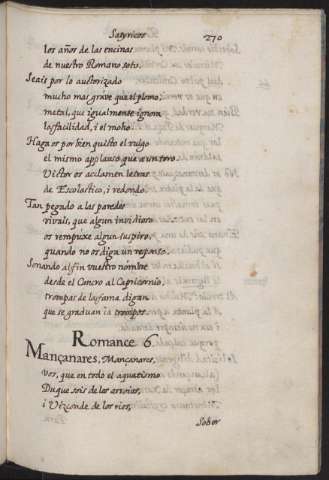 Satyricos
270
los años de las encinas
de nuestro Romano soto.
Seais por lo autorizado
mucho mas grave que el plomo,
metal, que igualmente ignora
la facilidad, i el moho.
Hagaos por bien quisto el vulgo
el mismo applauso que a un toro
Victor os aclamen letras
de Escolastico, i redondo.
Tan pegado a las paredes
vivais, que algun invidioso
os rempuxe algun suspiro,
quando no os diga un responso.
Sonando al fin vuestro nombre
desde el Cancro al Capricornio,
trompas de la fama digan
que se graduan la trompos.
Romance 6
Mançanares, Mançanares,
Vos, que en todo el aquatismo
Duque sois de los arroios,
i Vizconde de los rios,
Sober